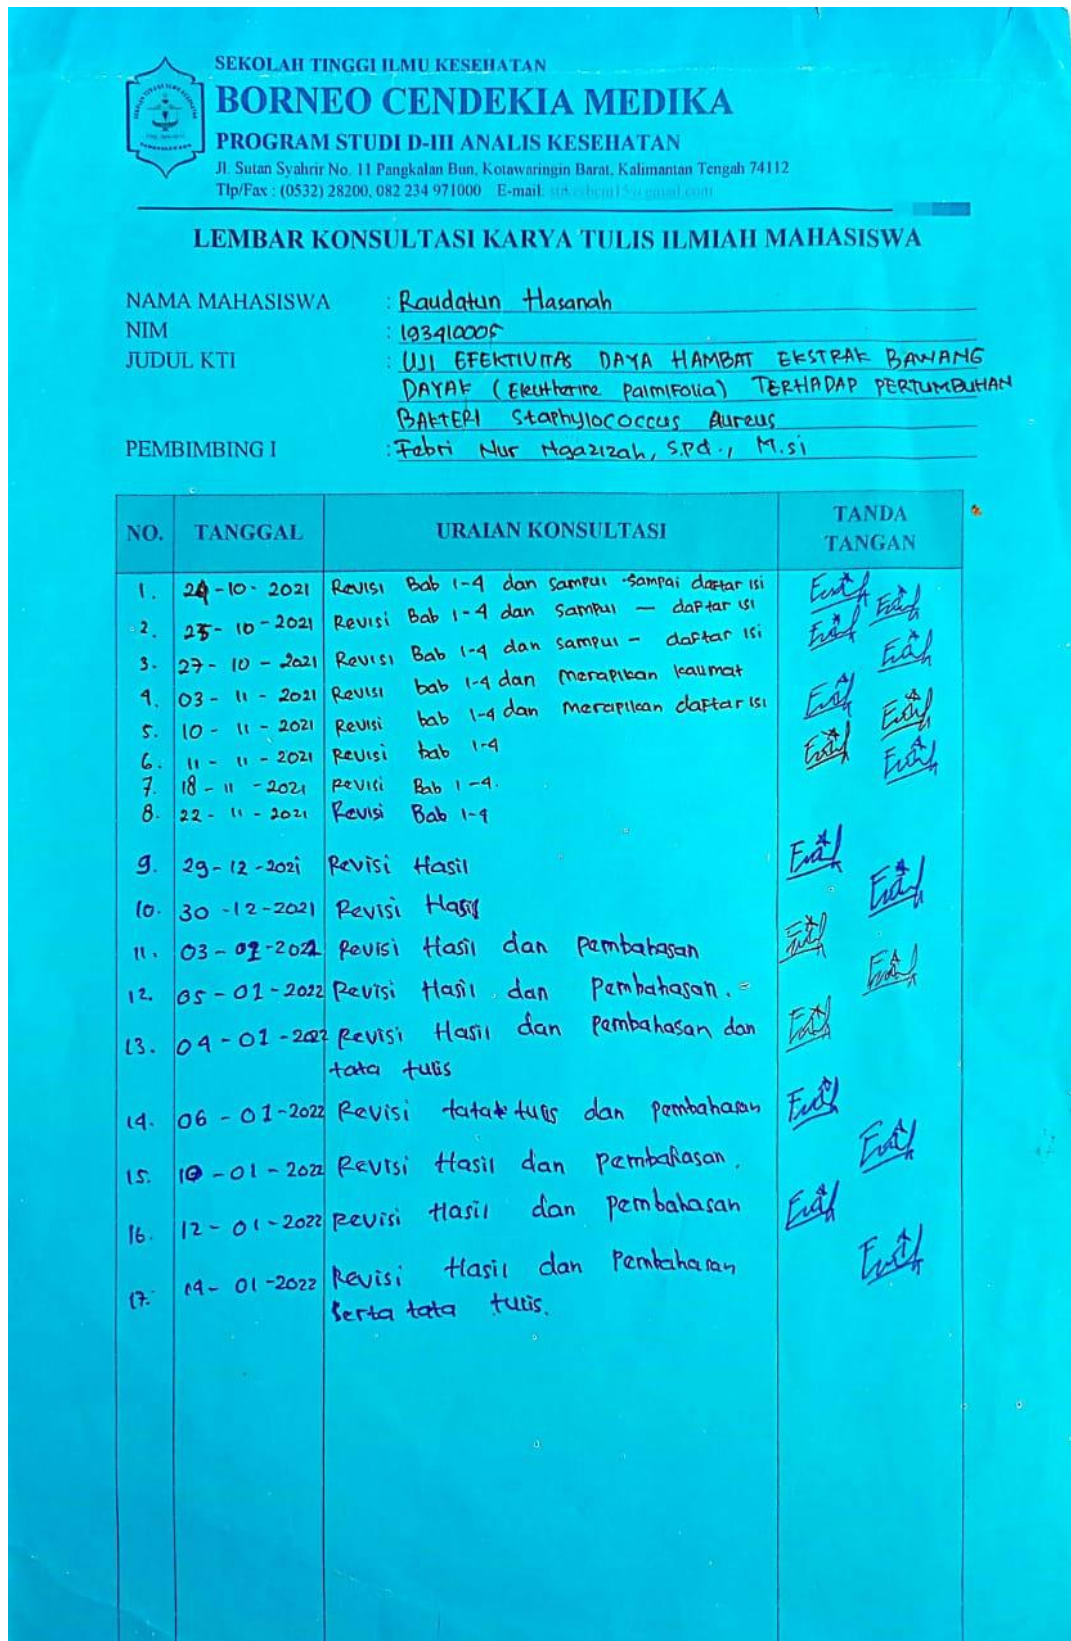 SEKOLAH TINGGI ILMU KESEHATAN
BORNEO CENDEKIA MEDIKA
PROGRAM STUDI D-III ANALIS KESEHATAN
Jl. Sutan Syahrir No. 11 Pangkalan Bun, Kotawaringin Barat, Kalimantan Tengah 74112
Tlp/Fax : (0532) 28200, 082 234 971000 E-mail:
LEMBAR KONSULTASI KARYA TULIS ILMIAH MAHASISWA
NAMA MAHASISWA : Raudatun Hasanah
NIM : 193410005
JUDUL KTI : UJI EFEKTIVITAS DAYA HAMBAT EKSTRAK BAWANG
DAYAK (Eleutherine PalmiFolia) TERHADAP PERTUMBUHAN
BAKTERI Staphylococcus Aureus
PEMBIMBING I : Febri Nur Ngazizah, S.Pd., M.si
NO. TANGGAL URAIAN KONSULTASI TANDA TANGAN
1. -10-2021 Revisi Bab 1-4 dan sampul sampai daftar isi
2. 25-10-2021 Revisi Bab 1-4 dan Sampul - daftar isi
3. 27-10-2021 Revisi Bab 1-4 dan sampul - daftar isi
4. 03-11-2021 Revisi bab 1-4 dan merapikan kalimat
5. 10-11-2021 Revisi bab 1-4 dan merapikan daftar isi
6. 11-11-2021 Revisi bab 1-4
7. 18-11-2021 Revisi Bab 1-4.
8. 22-11-2021 Revisi Bab 1-4
9. 29-12-2021 Revisi Hasil
10. 30-12-2021 Revisi Hasil
11. 03-01-2022 Revisi Hasil dan pembahasan
12. 05-01-2022 Revisi Hasil dan Pembahasan.
13. 04-01-2022 Revisi Hasil dan Pembahasan dan
tata tulis
14. 06-01-2022 Revisi tata tulis dan pembahasan
15. 10-01-2022 Revisi Hasil dan Pembahasan.
16. 12-01-2022 Revisi Hasil dan Pembahasan
17. 14-01-2022 Revisi Hasil dan Pembahasan
Serta tata tulis.